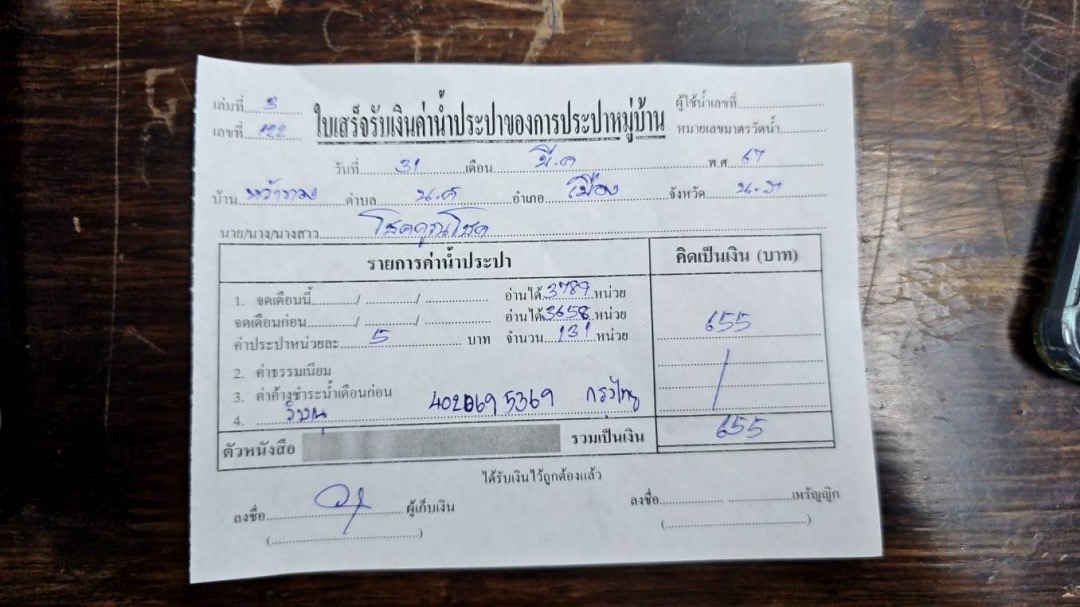 เล่มที่ 3
ใบเสร็จรับเงินค่าน้ำประปาของการประปาหมู่บ้าน
ผู้ใช้น้ำเลขที่
เลขที่ 122
หมายเลขมาตรวัดน้ำ
วันที่ 31 เดือน มี.ค พ.ศ 67
บ้าน ตำบล น.ค อำเภอ เมือง จังหวัด
นาย/นาง/นางสาว โชคคูณโชค
รายการค่าน้ำประปา คิดเป็นเงิน (บาท)
1. จดเดือนนี้ / / อ่านได้ 3789 หน่วย
จดเดือนก่อน / / อ่านได้ 3658 หน่วย
ค่าประปาหน่วยละ 5 บาท จำนวน 131 หน่วย 655
2. ค่าธรรมเนียม
3. ค่าค้างชำระน้ำเดือนก่อน
4. 402069 5369 กรุงไทย
ตัวหนังสือ รวมเป็นเงิน 655
ได้รับเงินไว้ถูกต้องแล้ว
ลงชื่อ ผู้เก็บเงิน ลงชื่อ เหรัญญิก
( ) ( )